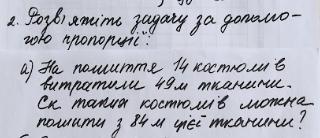 2. Розв'яжіть задачу за допомо-
гою пропорції:
а) На пошиття 14 костюмів
витратили 49 м тканини.
Ск таких костюмів можна
пошити з 84 м цієї тканини?